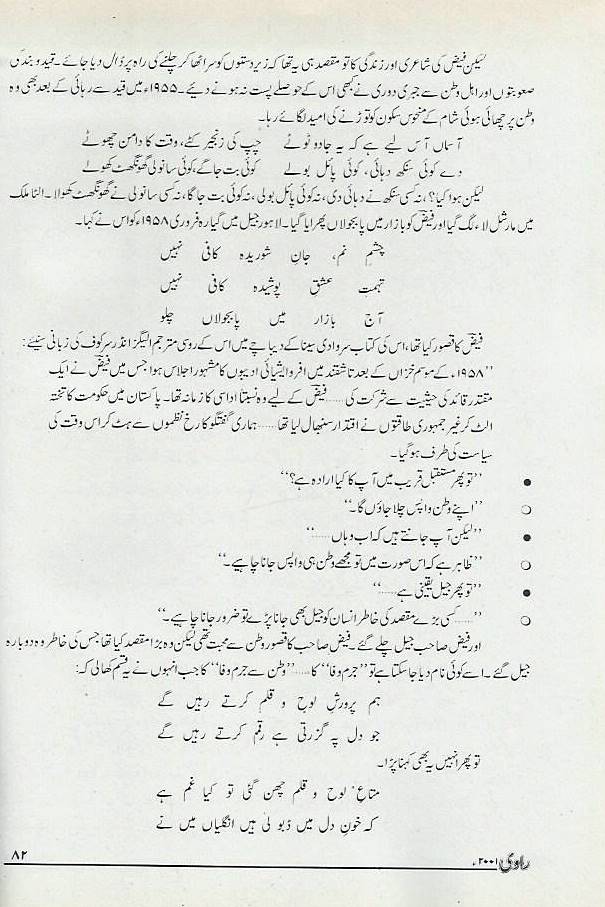 لیکن فیض کی شاعری اور زندگی کا تو مقصد ہی یہ تھا کہ زیر دستوں کو سر اٹھا کر چلنے کی راہ پر ڈال دیا جائے۔ قید و بند کی
صعوبتوں اور اہل وطن سے جبری دوری نے کبھی اس کے حوصلے پست نہ ہونے دیئے۔ ۱۹۵۵ء میں قید سے رہائی کے بعد بھی وہ
وطن پر چھائی ہوئی شام کے منحوس سکون کو توڑنے کی امید لگائے رہا۔
آسماں آس لیے ہے کہ یہ جادو ٹوٹے چپ کی زنجیر کٹے، وقت کا دامن چھوٹے
دے کوئی سنکھ دہائی، کوئی پائل بولے کوئی بت جاگے، کوئی سانولی گھونگھٹ کھولے
لیکن ہوا کیا؟، نہ کسی سنکھ نے دہائی دی، نہ کوئی پائل بولی، نہ کوئی بت جاگا، نہ کسی سانولی نے گھونگھٹ کھولا۔ الٹا ملک
میں مارشل لاء لگ گیا اور فیض کو بازار میں پابجولاں پھرایا گیا۔ لاہور جیل میں گیارہ فروری ۱۹۵۸ء کو اس نے کہا۔
چشمِ نم، جانِ شوریدہ کافی نہیں
تہمتِ عشقِ پوشیدہ کافی نہیں
آج بازار میں پابجولاں چلو
فیض کا قصور کیا تھا، اس کی کتاب سر وادی سینا کے دیباچے میں اس کے روسی مترجم الیگز انڈر سرکوف کی زبانی سنیئے:
"۱۹۵۸ء کے موسم خزاں کے بعد تاشقند میں افرو ایشیائی ادیبوں کا مشہور اجلاس ہوا جس میں فیض نے ایک
مقتدر قائد کی حیثیت سے شرکت کی ...... فیض کے لیے وہ نسبتاً اداسی کا زمانہ تھا۔ پاکستان میں حکومت کا تختہ
الٹ کر غیر جمہوری طاقتوں نے اقتدار سنبھال لیا تھا ...... ہماری گفتگو کا رخ نظموں سے ہٹ کر اس وقت کی
سیاست کی طرف ہو گیا۔
● "تو پھر مستقبل قریب میں آپ کا کیا ارادہ ہے؟"
○ "اپنے وطن واپس چلا جاؤں گا۔"
● "لیکن آپ جانتے ہیں کہ اب وہاں ......"
○ "ظاہر ہے کہ اس صورت میں تو مجھے وطن ہی واپس جانا چاہیے۔"
● "تو پھر جیل یقینی ہے ......"
○ "...... کسی بڑے مقصد کی خاطر انسان کو جیل بھی جانا پڑے تو ضرور جانا چاہیے۔"
اور فیض صاحب جیل چلے گئے۔ فیض صاحب کا قصور وطن سے محبت تھی لیکن وہ بڑا مقصد کیا تھا جس کی خاطر وہ دوبارہ
جیل گئے۔ اسے کوئی نام دیا جا سکتا ہے تو "جرم وفا" کا ...... "وطن سے جرم وفا" کا جب انہوں نے یہ قسم کھالی کہ:
ہم پرورشِ لوح و قلم کرتے رہیں گے
جو دل پہ گزرتی ہے رقم کرتے رہیں گے
تو پھر انہیں یہ بھی کہنا پڑا۔
متاعِ لوح و قلم چھن گئی تو کیا غم ہے
کہ خونِ دل میں ڈبو لی ہیں انگلیاں میں نے
راوی ۲۰۰۱ء ۸۲